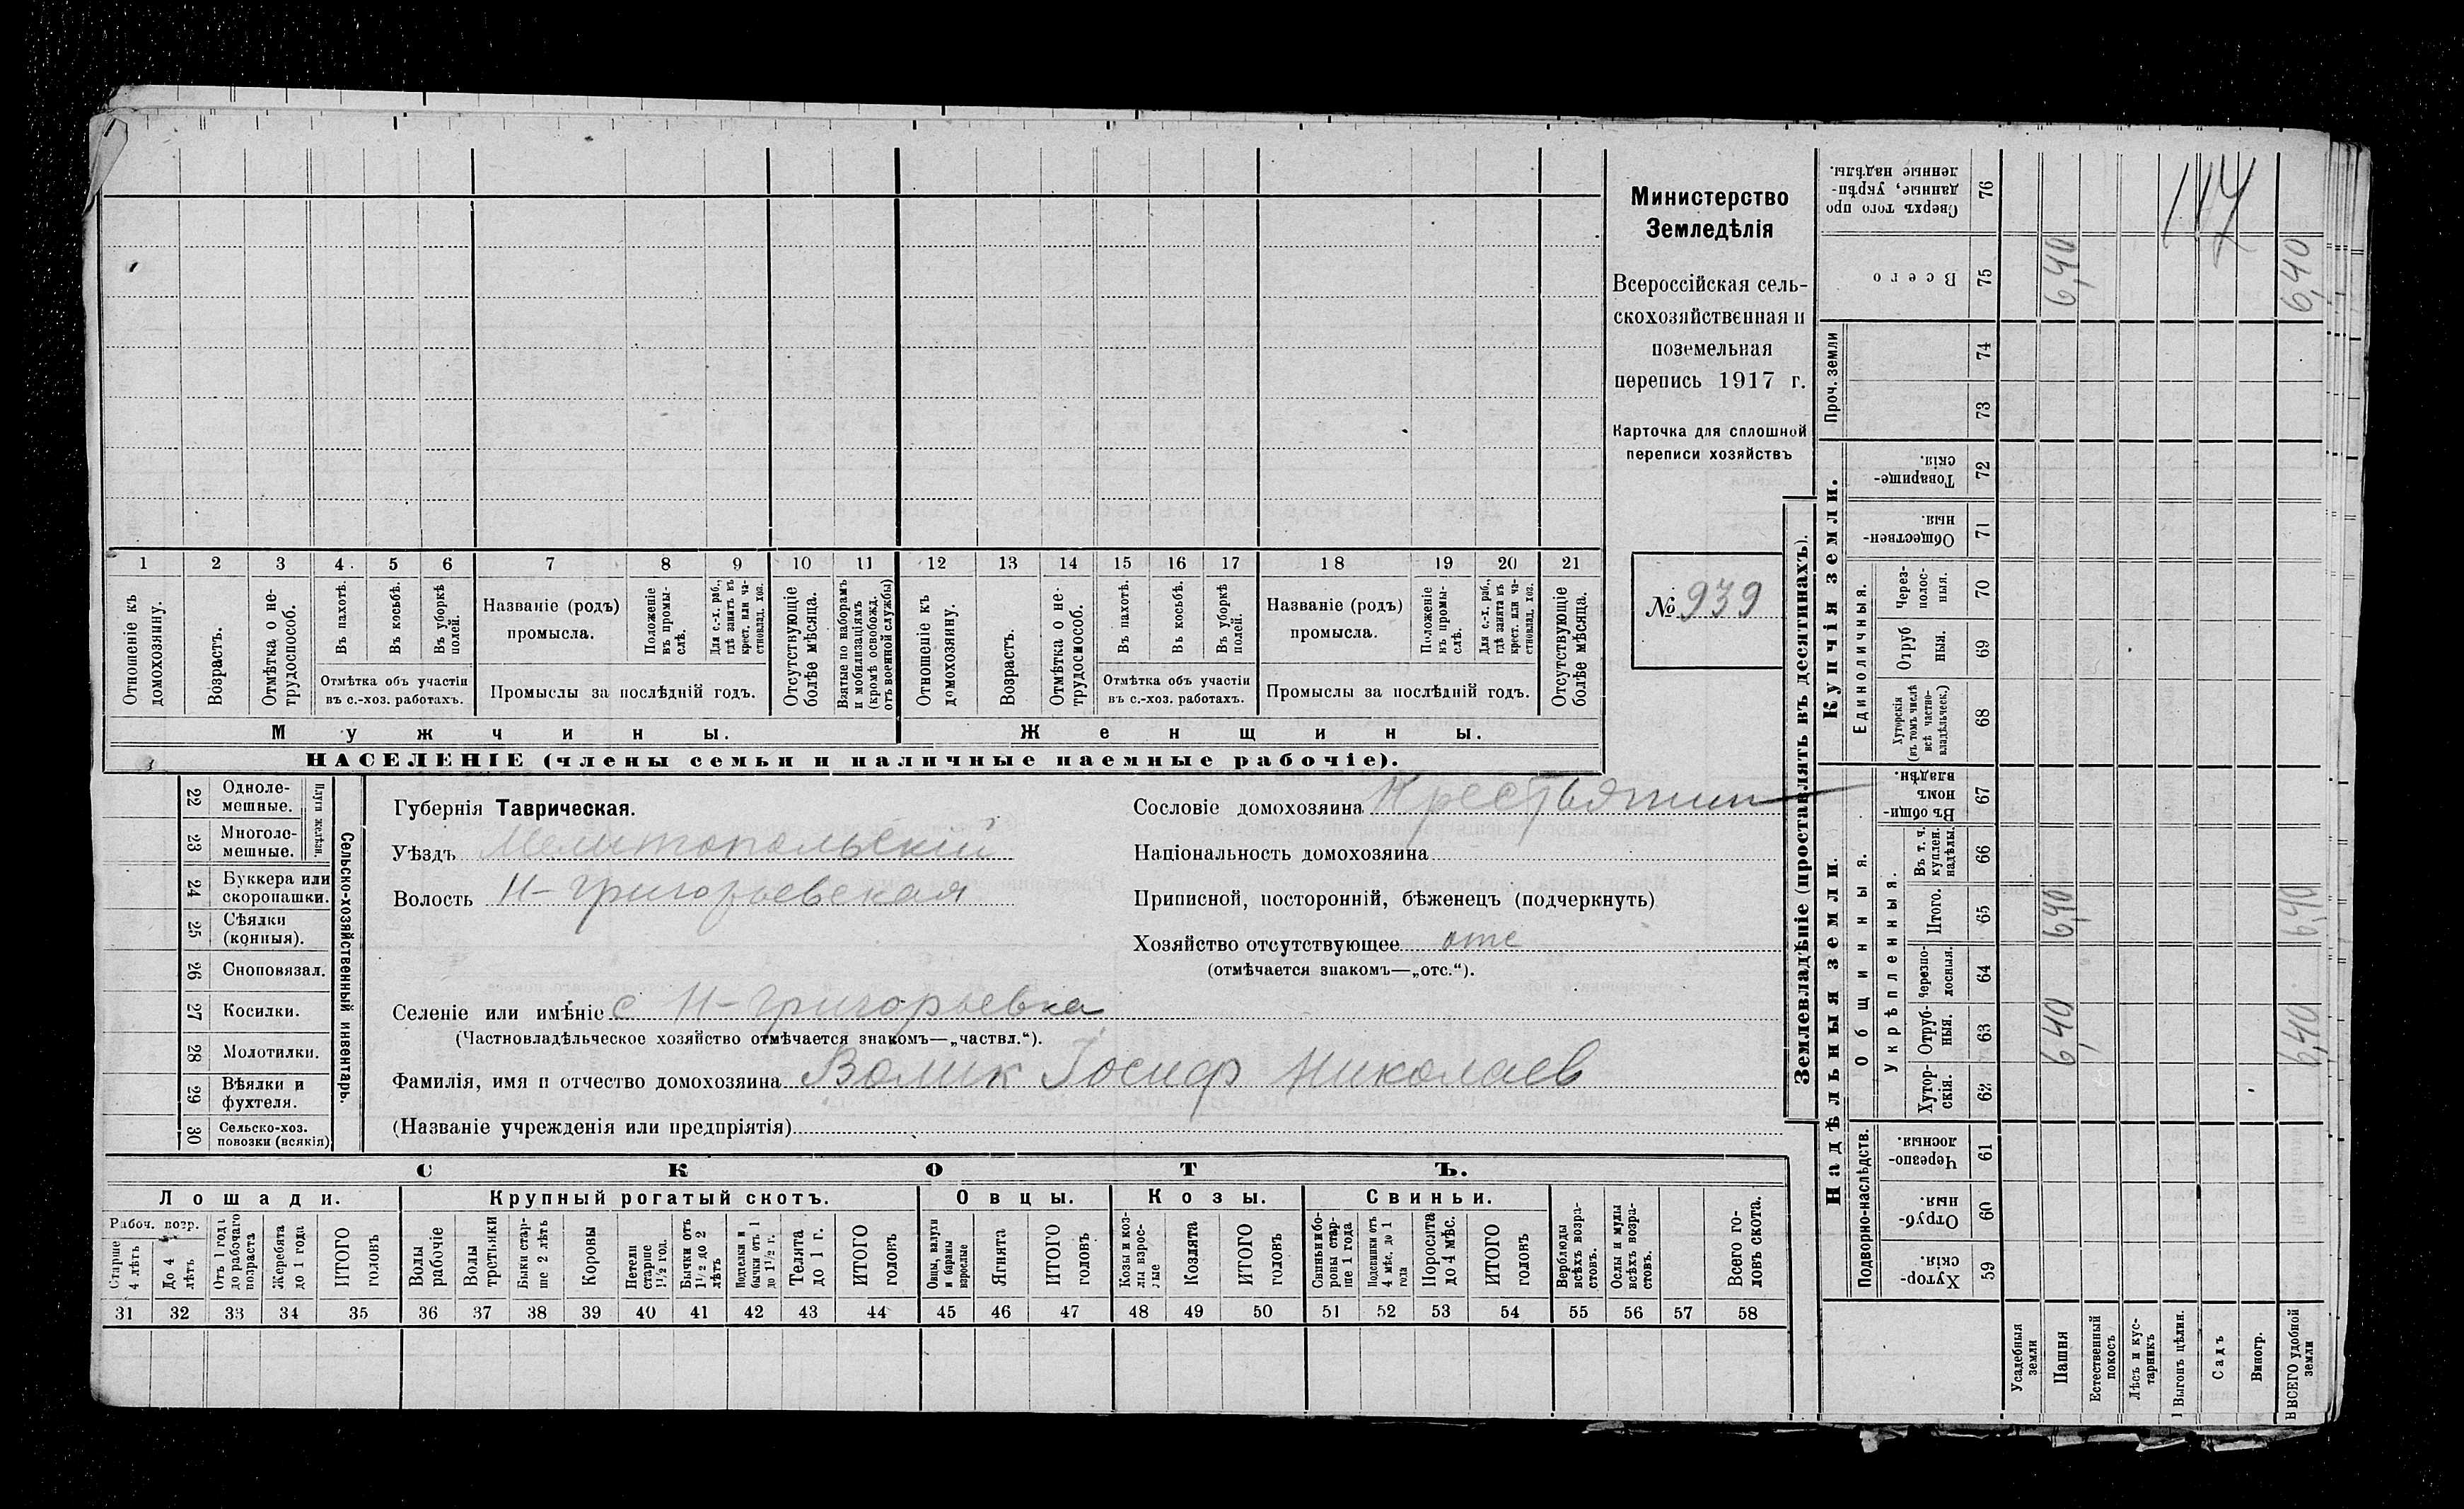 Министерство
Земледѣлія
Всероссійская сель-
скохозяйственная и
поземельная
перепись 1917 г.
Карточка для сплошной
переписи хозяйствъ
№ 939
1 2 3 4 5 6 7 8 9 10 11 12 13 14 15 16 17 18 19 20 21
Отношеніе къ домохозяину.
Возрастъ.
Отмѣтка о не-трудоспособ.
Въ пахотѣ.
Въ косьбѣ.
Въ уборкѣ полей.
Отмѣтка объ участіи
въ с.-хоз. работахъ.
Названіе (родъ)
промысла.
Положеніе въ промы-слѣ.
Для с.-х. раб., гдѣ занятъ въ крест. или ча-стновлад. хоз.
Промыслы за послѣдній годъ.
Отсутствующіе болѣе мѣсяца.
Взятые по наборамъ и мобилизаціямъ (кромѣ освобожд. отъ военной службы)
Отношеніе къ домохозяину.
Возрастъ.
Отмѣтка о не-трудоспособ.
Въ пахотѣ.
Въ косьбѣ.
Въ уборкѣ полей.
Отмѣтка объ участіи
въ с.-хоз. работахъ.
Названіе (родъ)
промысла.
Положеніе въ промы-слѣ.
Для с.-х. раб., гдѣ занятъ въ крест. или ча-стновлад. хоз.
Промыслы за послѣдній годъ.
Отсутствующіе болѣе мѣсяца.
Мужчины.
Женщины.
НАСЕЛЕНІЕ (члены семьи и наличные наемные рабочіе).
22 Одноле-мешные.
23 Многоле-мешные.
Плуги желѣзн.
24 Буккера или скоропашки.
25 Сѣялки (конныя).
26 Сноповязал.
27 Косилки.
28 Молотилки.
29 Вѣялки и фухтеля.
30 Сельско-хоз. повозки (всякія)
Сельско-хозяйственный инвентарь.
Губернія Таврическая.
Уѣздъ Мелитопольскій
Волость Н-Григорьевская
Селеніе или имѣніе с Н-Григорьевка
(Частновладѣльческое хозяйство отмѣчается знакомъ—„частвл.“).
Фамилія, имя и отчество домохозяина Волик Іосиф Николаев
(Названіе учрежденія или предпріятія)
Сословіе домохозяина Крестьянин
Національность домохозяина
Приписной, посторонній, бѣженецъ (подчеркнуть)
Хозяйство отсутствующее отс
(отмѣчается знакомъ—„отс.“).
СКОТЪ.
Лошади.
Крупный рогатый скотъ.
Овцы.
Козы.
Свиньи.
Рабоч. возр.
Старше 4 лѣтъ
До 4 лѣтъ
Отъ 1 года до рабочаго возраста
Жеребята до 1 года
ИТОГО головъ
Волы рабочіе
Волы третьяки
Быки стар-ше 2 лѣтъ
Коровы
Петели старше 1½ год.
Бычки отъ 1½ до 2 лѣтъ
Подтелки и бычки отъ 1 до 1½ г.
Телята до 1 г.
ИТОГО головъ
Овцы, валухи и бараны взрослые
Ягнята
ИТОГО головъ
Козы и коз-лы взрос-лые
Козлята
ИТОГО головъ
Свиньи и бо-ровы стар-ше 1 года
Подсвинки отъ 4 мѣс. до 1 года
Поросята до 4 мѣс.
ИТОГО головъ
Верблюды всѣхъ возра-стовъ.
Ослы и мулы всѣхъ возра-стовъ.
Всего го-ловъ скота.
31 32 33 34 35 36 37 38 39 40 41 42 43 44 45 46 47 48 49 50 51 52 53 54 55 56 57 58
Землевладѣніе (проставлять въ десятинахъ).
Надѣльныя земли.
Купчія земли.
Проч. земли
Подворно-наслѣдств.
Общинныя.
Укрѣпленныя.
Единоличныя.
Сверхъ того про-данные, укрѣп-ленные надѣлы. 76
Всего 75
74
73
Товарище-скія. 72
Обществен-ныя. 71
Через-полос-ныя. 70
Отруб-ныя. 69
Хуторскія (въ томъ числѣ всѣ частно-владѣльческ.) 68
Въ общи-номъ владѣн. 67
Въ т. ч. куплен. надѣлы. 66
Итого. 65
Черезпо-лосныя. 64
Отруб-ныя. 63
Хутор-скія. 62
Черезпо-лосныя. 61
Отруб-ныя. 60
Хутор-скія. 59
Усадебныя земли
Пашня
6,40 6,40 6,40
Естественный покосъ
Лѣсъ и кус-тарникъ
Выгонъ цѣлин.
Садъ
Виногр.
ВСЕГО удобной земли
6,40 6,40 6,40